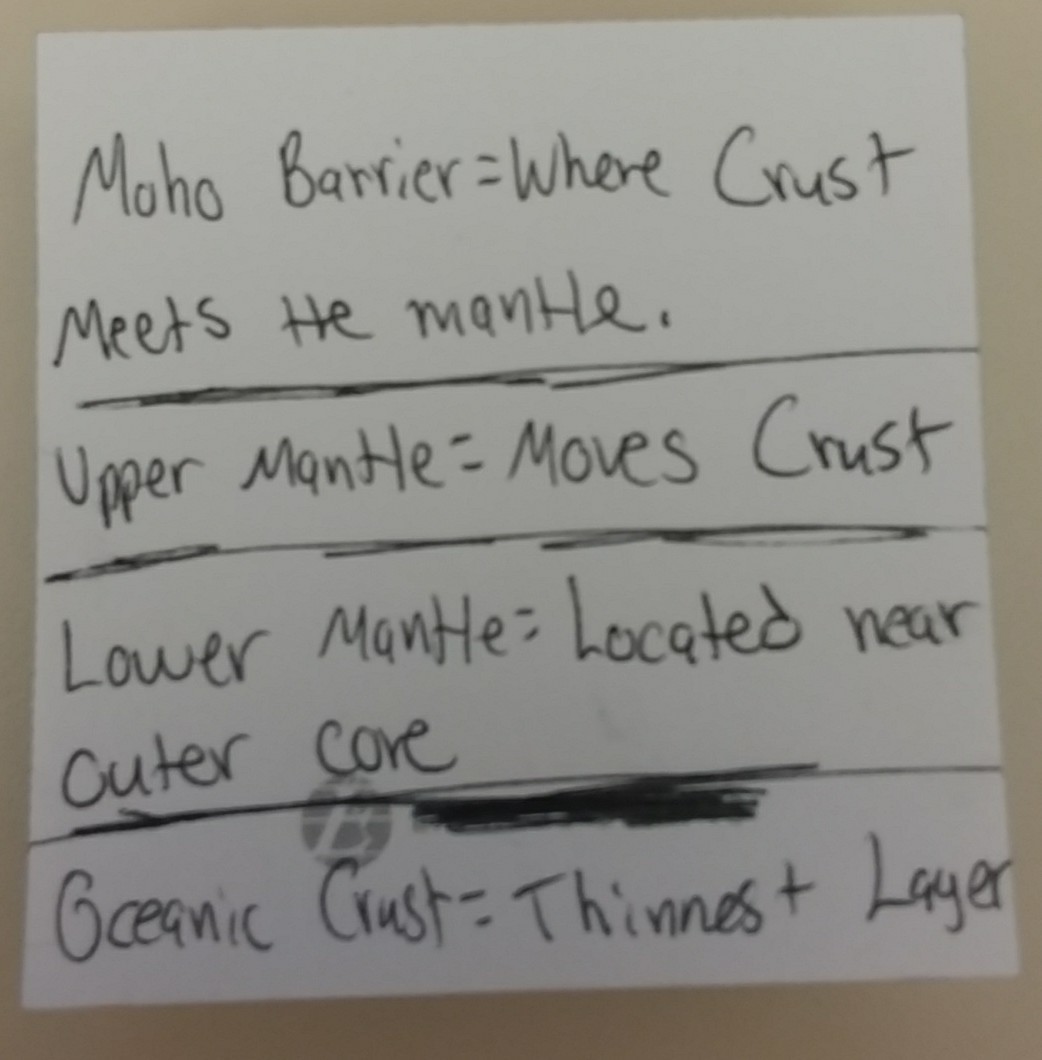 Moho Barrier = Where Crust
Meets the mantle.
Upper Mantle = Moves Crust
Lower Mantle = Located near
outer core
Oceanic Crust = Thinnest Layer